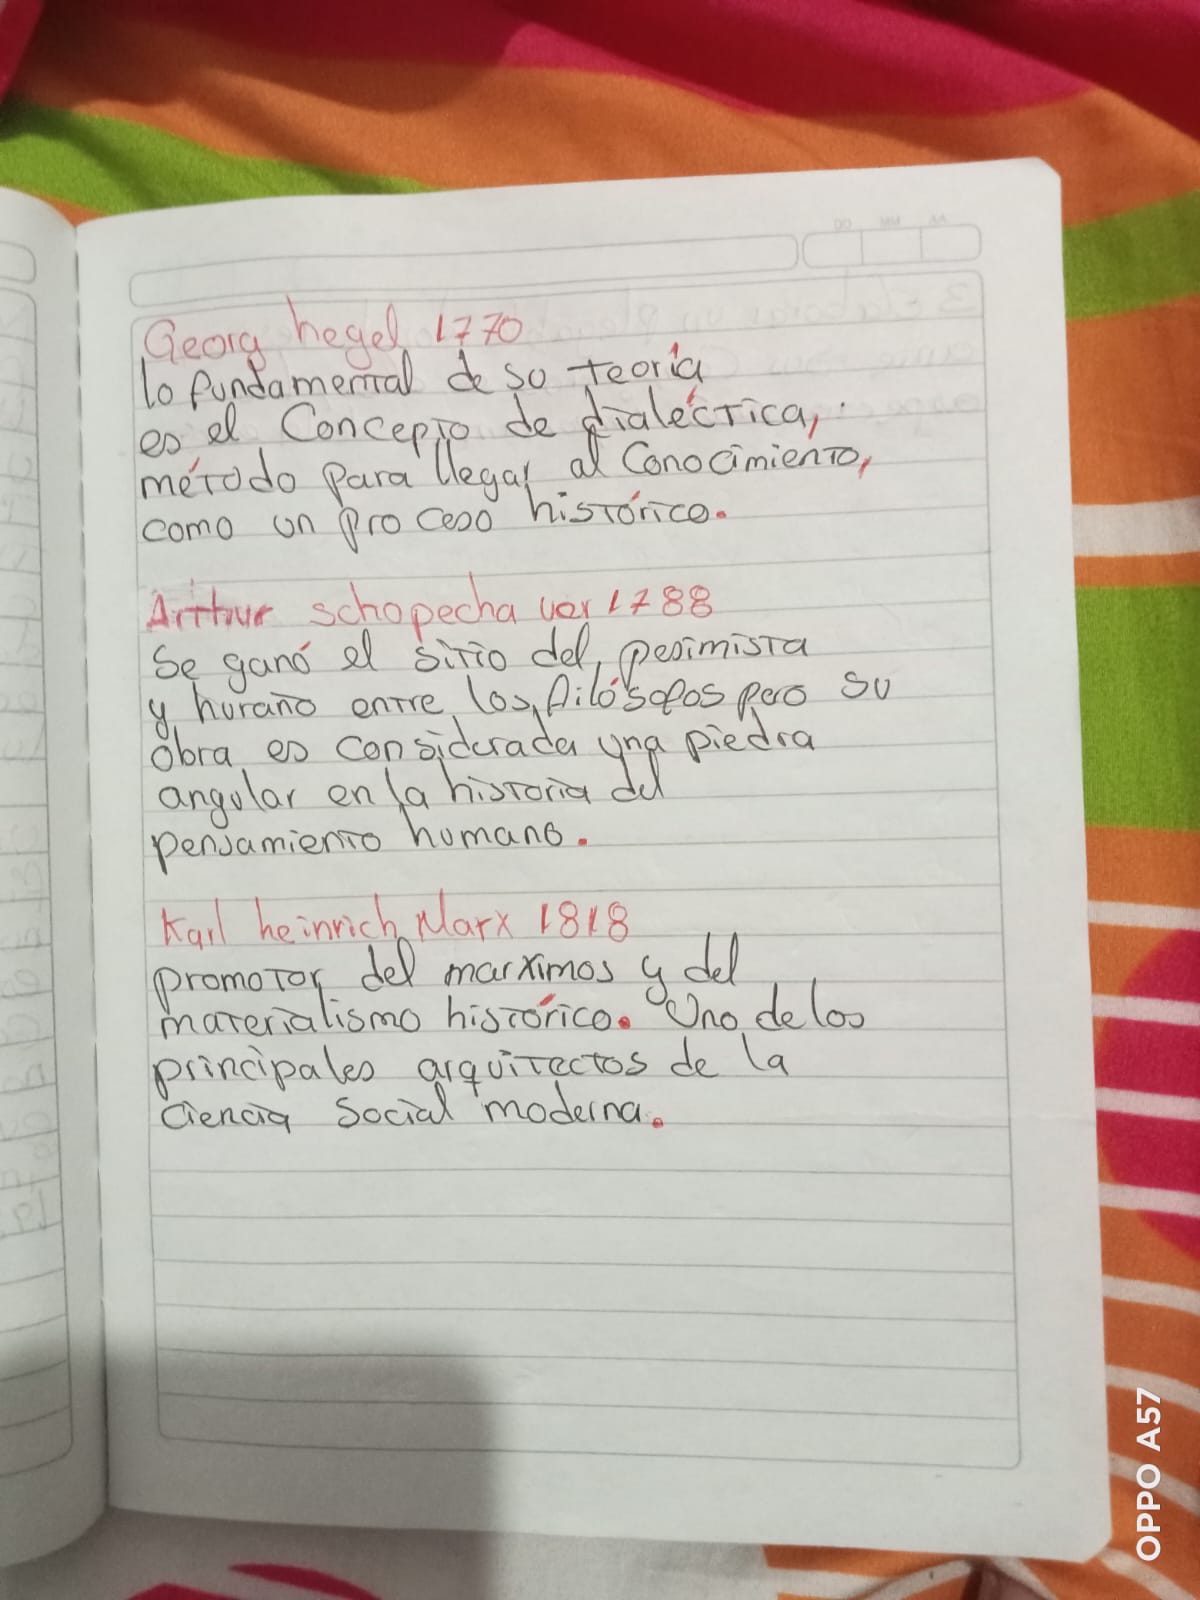 DD MM AA
Georg hegel 1770
lo fundamental de su teoría
es el Concepto de dialéctica,
método para llegar al Conocimiento,
como un proceso histórico.
Arthur schopecha uer 1788
Se ganó el sitio del pesimista
y huraño entre los filósofos pero su
obra es considerada una piedra
angular en la historia del
pensamiento humano.
Karl heinrich Marx 1818
promotor del marximos y del
materialismo histórico. Uno de los
principales arquitectos de la
Ciencia Social moderna.
OPPO A57